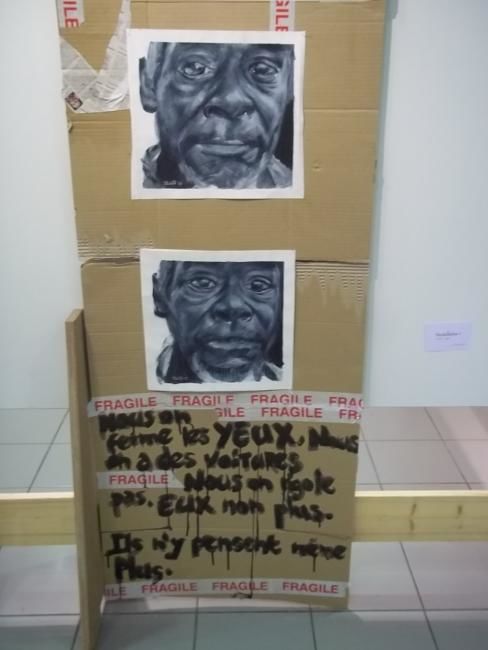 GILE
GILE
FRAGILE FRAGILE FRAGILE FRAG
GILE FRAGILE FR
Nous on
ferme les YEUX. Nous
on a des voitures
FRAGILE Nous on rigole
pas. EUX non plus.
Ils n'y pensent même
Plus.
ILE FRAGILE FRAGILE FRAGILE